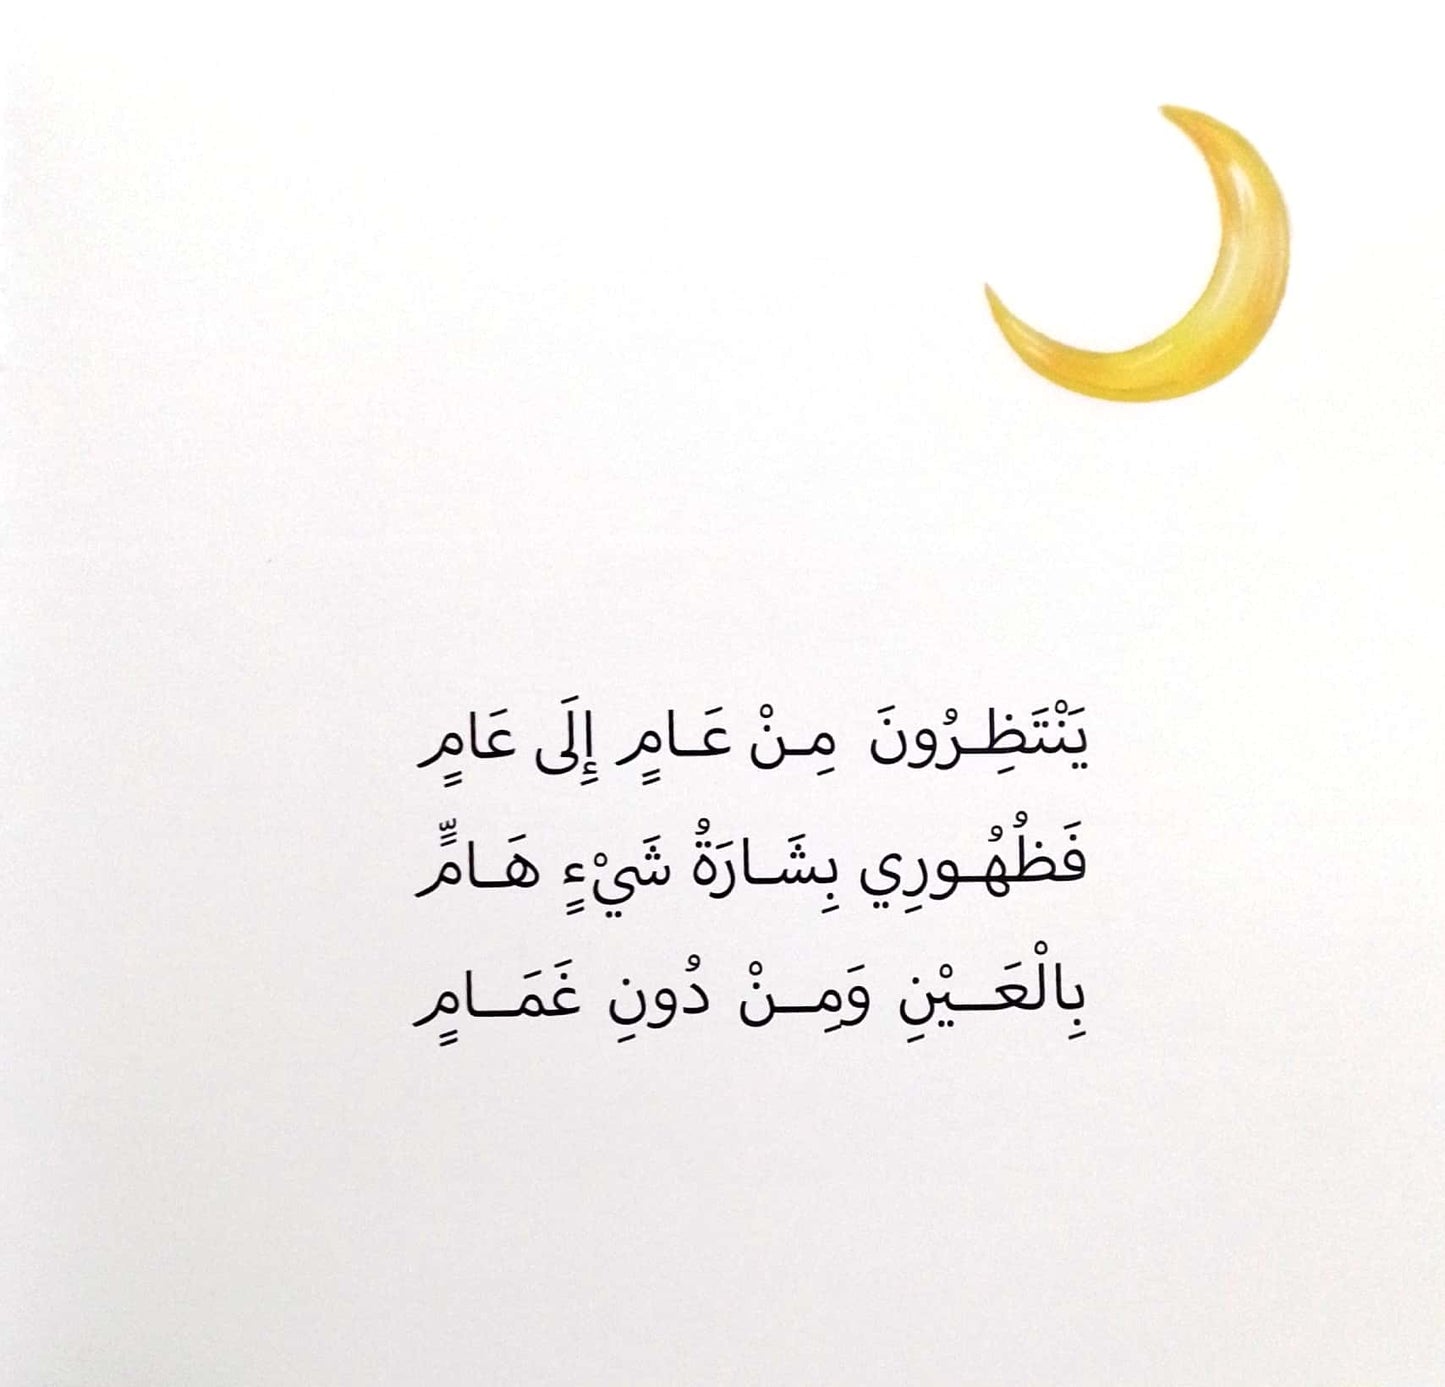 يَنْتَظِرُونَ مِنْ عَامٍ إِلَى عَامٍ
فَظُهُورِي بِشَارَةُ شَيْءٍ هَامٍّ
بِالْعَيْنِ وَمِنْ دُونِ غَمَامٍ